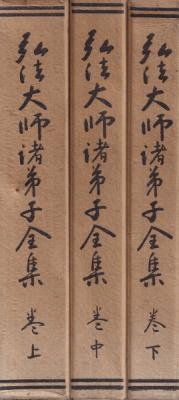 弘法大師諸弟子全集 巻上
弘法大師諸弟子全集 巻中
弘法大師諸弟子全集 巻下